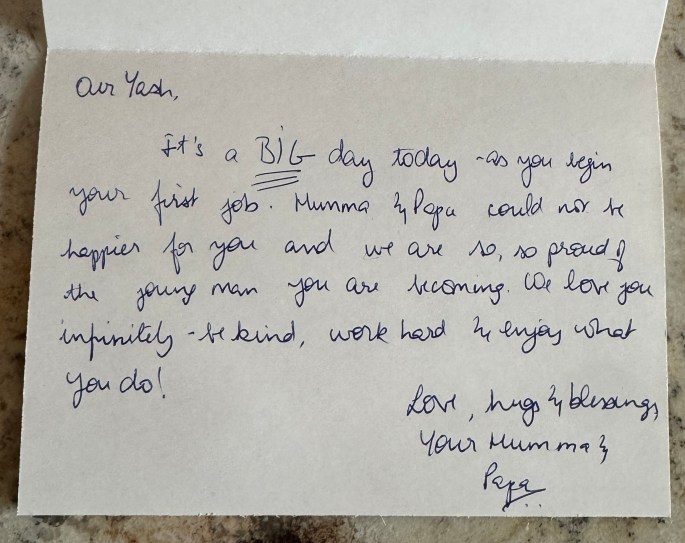 Our Yash,
It's a BIG day today - as you begin
your first job. Mumma & Papa could not be
happier for you and we are so, so proud of
the young man you are becoming. We love you
infinitely - be kind, work hard & enjoy what
you do!
Love, hugs & blessings,
Your Mumma &
Papa